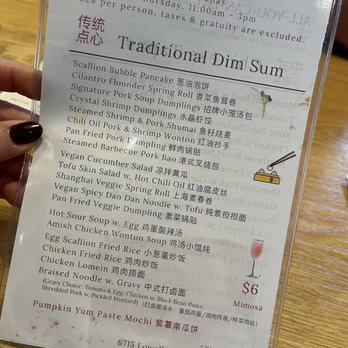 $28 per person, taxes & gratuity are excluded
传统
点心
Traditional Dim Sum
Scallion Bubble Pancake 葱油泡饼
Cilantro Flounder Spring Roll 香菜鱼茸卷
Signature Pork Soup Dumplings 招牌小笼汤包
Crystal Shrimp Dumplings 水晶虾饺
Steamed Shrimp & Pork Shumai 鱼籽烧麦
Chili Oil Pork & Shrimp Wonton 红油抄手
Pan Fried Pork Dumpling 鲜肉锅贴
Steamed Barbecue Pork Bao 港式叉烧包
Vegan Cucumber Salad 凉拌黄瓜
Tofu Skin Salad w. Hot Chili Oil 红油腐皮丝
Shanghai Veggie Spring Roll 上海素春卷
Vegan Spicy Dan Dan Noodle w. Tofu 纯素担担面
Pan Fried Veggie Dumpling 素菜锅贴
Hot Sour Soup w. Egg 鸡蛋酸辣汤
Amish Chicken Wonton Soup 鸡汤小馄炖
Egg Scallion Fried Rice 小葱蛋炒饭
Chicken Fried Rice 鸡肉炒饭
Chicken Lomein 鸡肉捞面
Braised Noodle w. Gravy 中式打卤面
(Gravy Choice: Tomato & Egg, Chicken w. Black Bean Paste,
Shredded Pork w. Pickled Mustard) (打卤面浇头: 番茄鸡蛋/鸡肉炸酱/榨菜肉丝)
$6
Mimosa
Pumpkin Yum Paste Mochi 紫薯南瓜饼